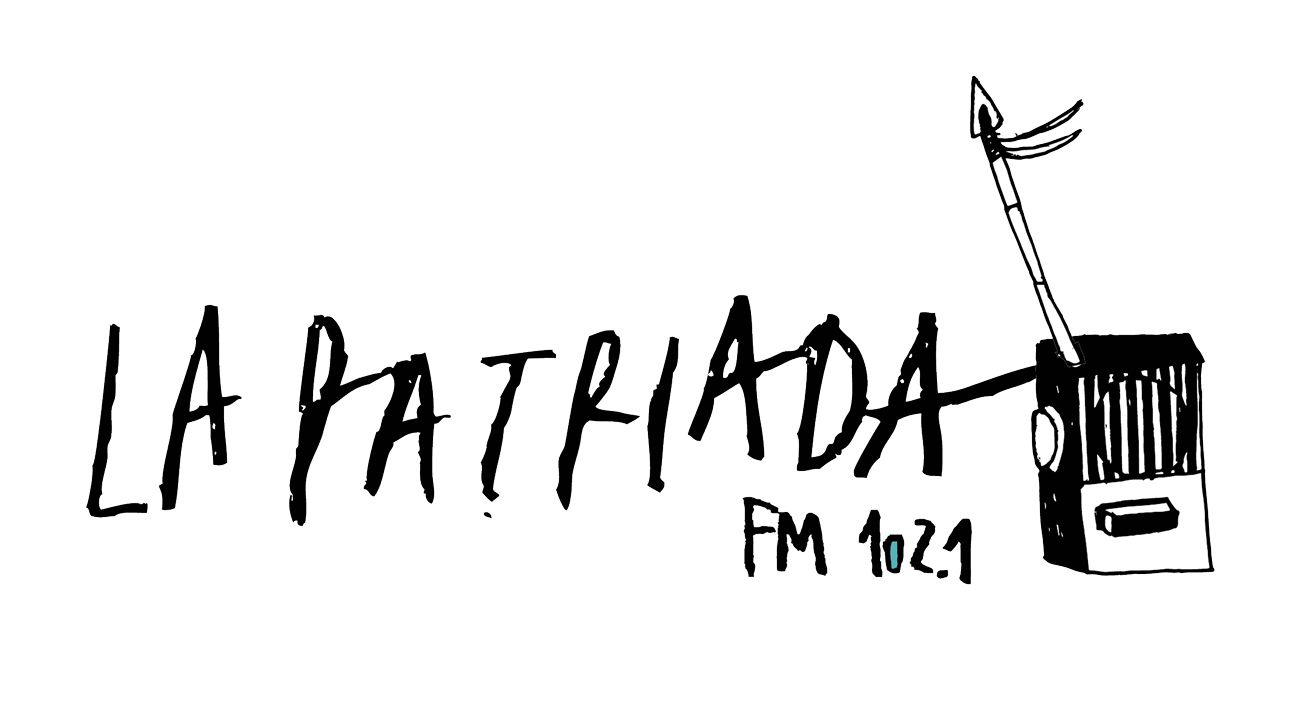 LA PATRIADA
FM 102.1